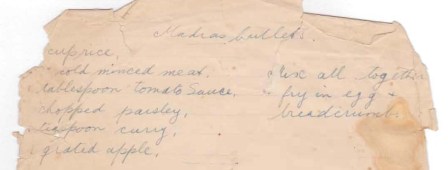 Madras Cutlets.
cup rice,
cold minced meat.
tablespoon tomato sauce.
chopped parsley,
teaspoon curry,
grated apple,
Mix all together
fry in egg &
breadcrumbs